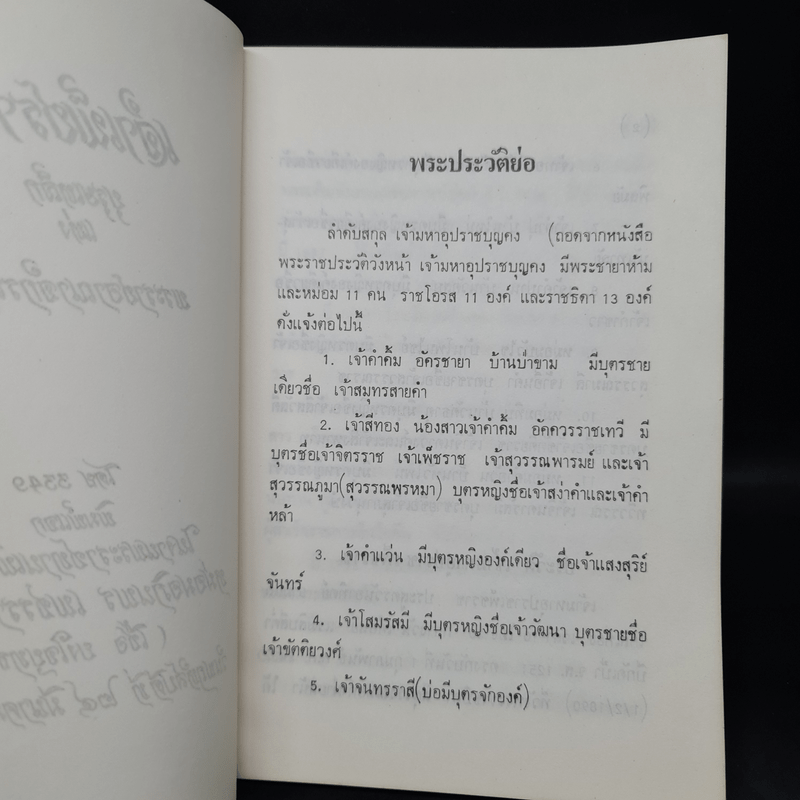 พระประวัติย่อ
ลำดับสกุล เจ้ามหาอุปราชบุญคง (ถอดจากหนังสือ
พระราชประวัติวังหน้า เจ้ามหาอุปราชบุญคง มีพระชายาห้าม
และหม่อม 11 คน ราชโอรส 11 องค์ และราชธิดา 13 องค์
ดั่งแจ้งต่อไปนี้
1. เจ้าคำคิ้ม อัครชายา บ้านป่าขาม มีบุตรชาย
เดียวชื่อ เจ้าสมุทรสายคำ
2. เจ้าสีทอง น้องสาวเจ้าคำคิ้ม อัคควรราชเทวี มี
บุตรชื่อเจ้าจิตรราช เจ้าเพ็ชราช เจ้าสุวรรณพารมย์ และเจ้า
สุวรรณภูมา(สุวรรณพรหมา) บุตรหญิงชื่อเจ้าสง่าคำและเจ้าคำ
หล้า
3. เจ้าคำแว่น มีบุตรหญิงองค์เดียว ชื่อเจ้าแสงสุริย์
จันทร์
4. เจ้าโสมรัสมี มีบุตรหญิงชื่อเจ้าวัฒนา บุตรชายชื่อ
เจ้าขัตติยวงศ์
5. เจ้าจันทรราสี(บ่อมีบุตรจักองค์)